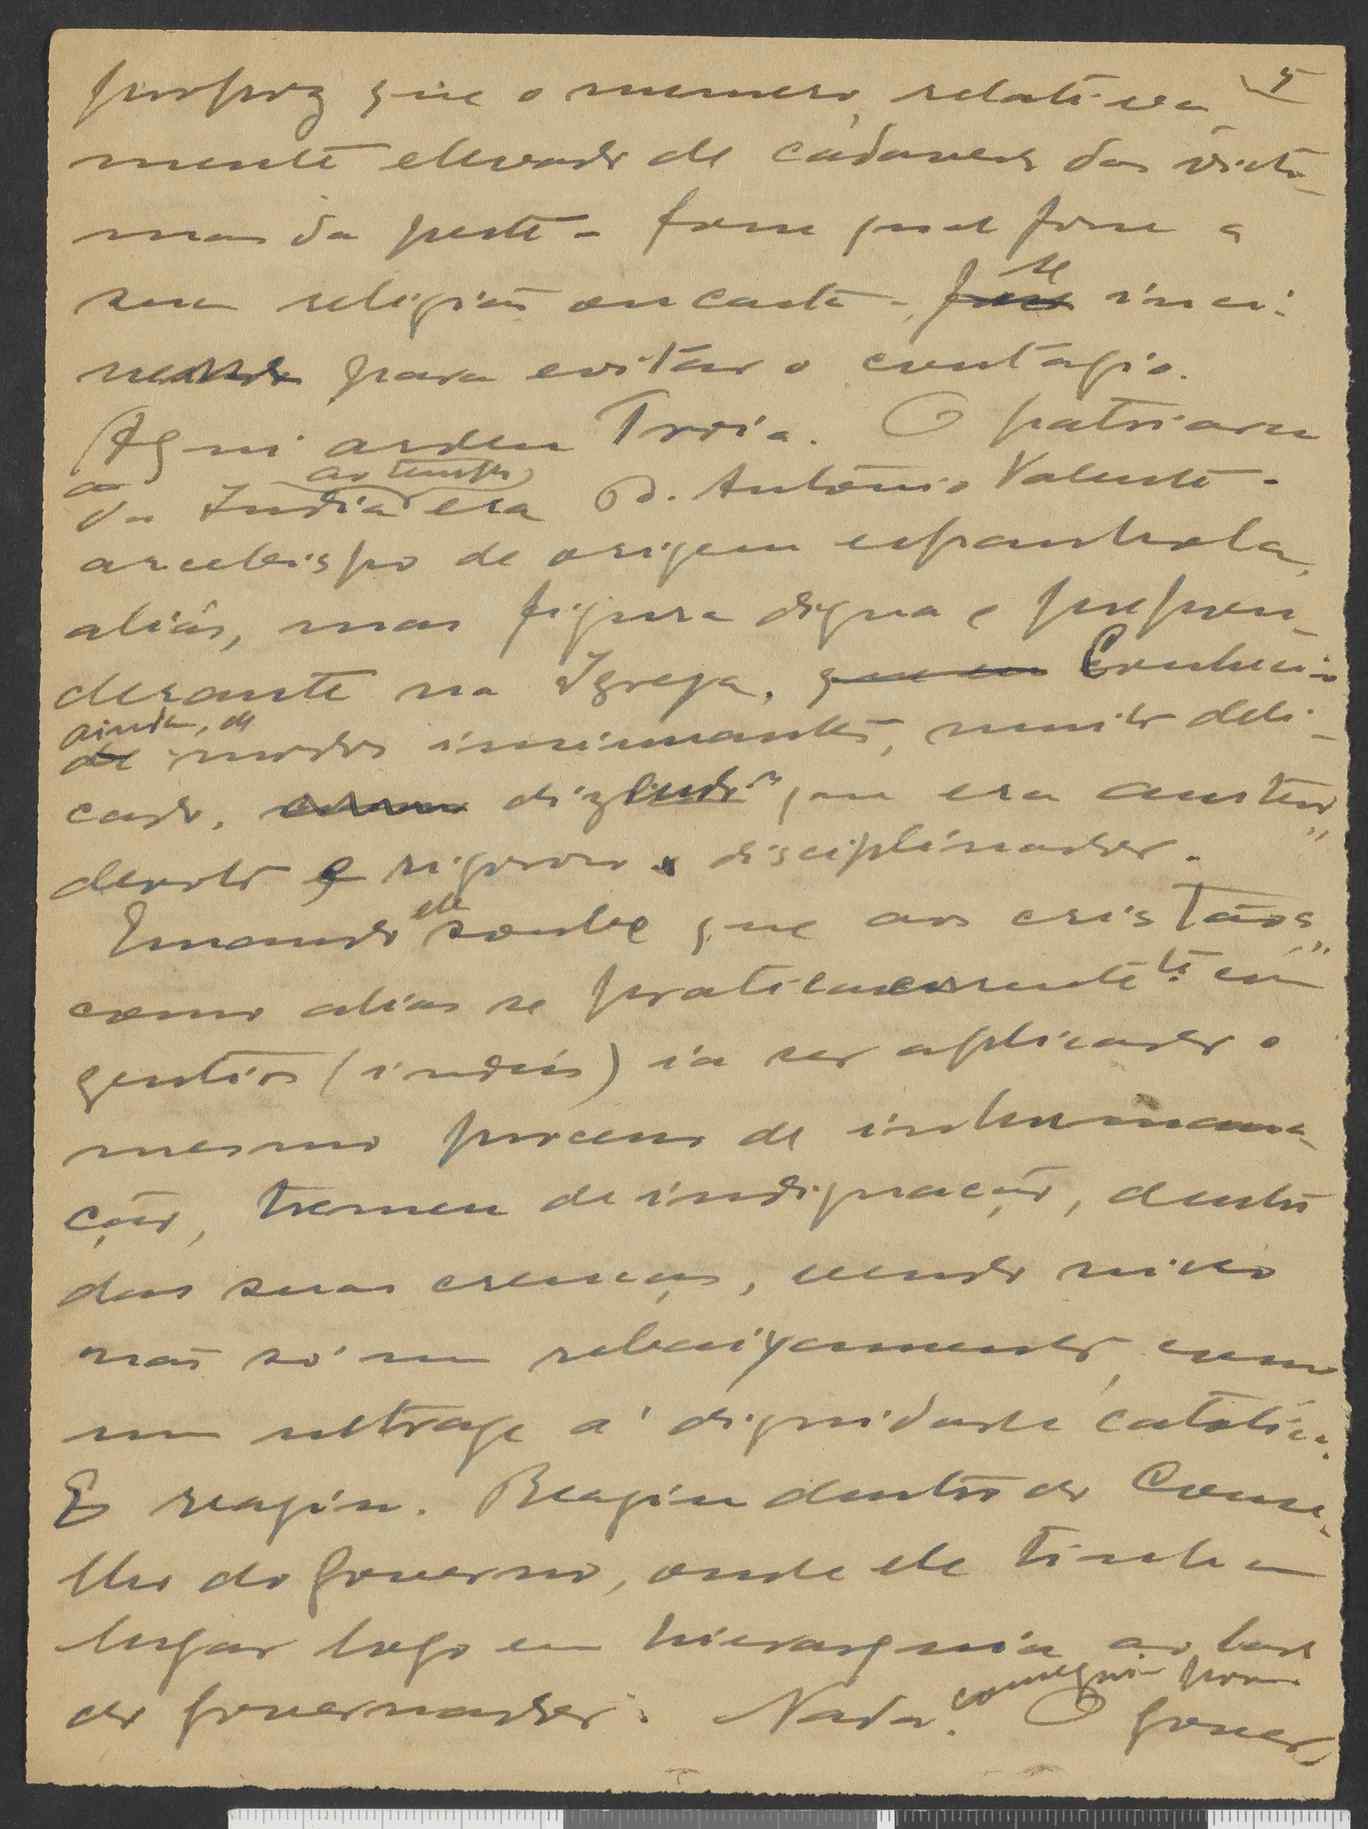 5
propoz que o numero, relativa
mente elevado de cadaveres das victi-
mas da peste - fosse qual fosse a
sua religião ou casta - fosse se inci-
nerando para evitar o contagio.
Aqui ardeu Troia. O patriarca
da India ao tempo era D. António Valente -
arcebispo de origem espanhola,
aliás, mas figura digna e prepon-
derante na Igreja, Conhecido
ainda, de modos insinuantes, muito deli-
cado, dizendo que era austero,
devoto e rigoroso disciplinador.
Emando ele soube que aos cristãos,
como aliás se
gentios (indús) ia ser aplicado o
mesmo processo de inhumana-
ção, tremeu de indignação, dentro
das suas crenças, vendo nisso
não só um rebaixamento, como
um ultrage á dignidade católica.
E reagiu. Reagiu dentro do Conse-
lho do Governo, onde ele tinha
lugar logo em hierarquia ao lado
do governador. Nada conseguiu porem. O gover-